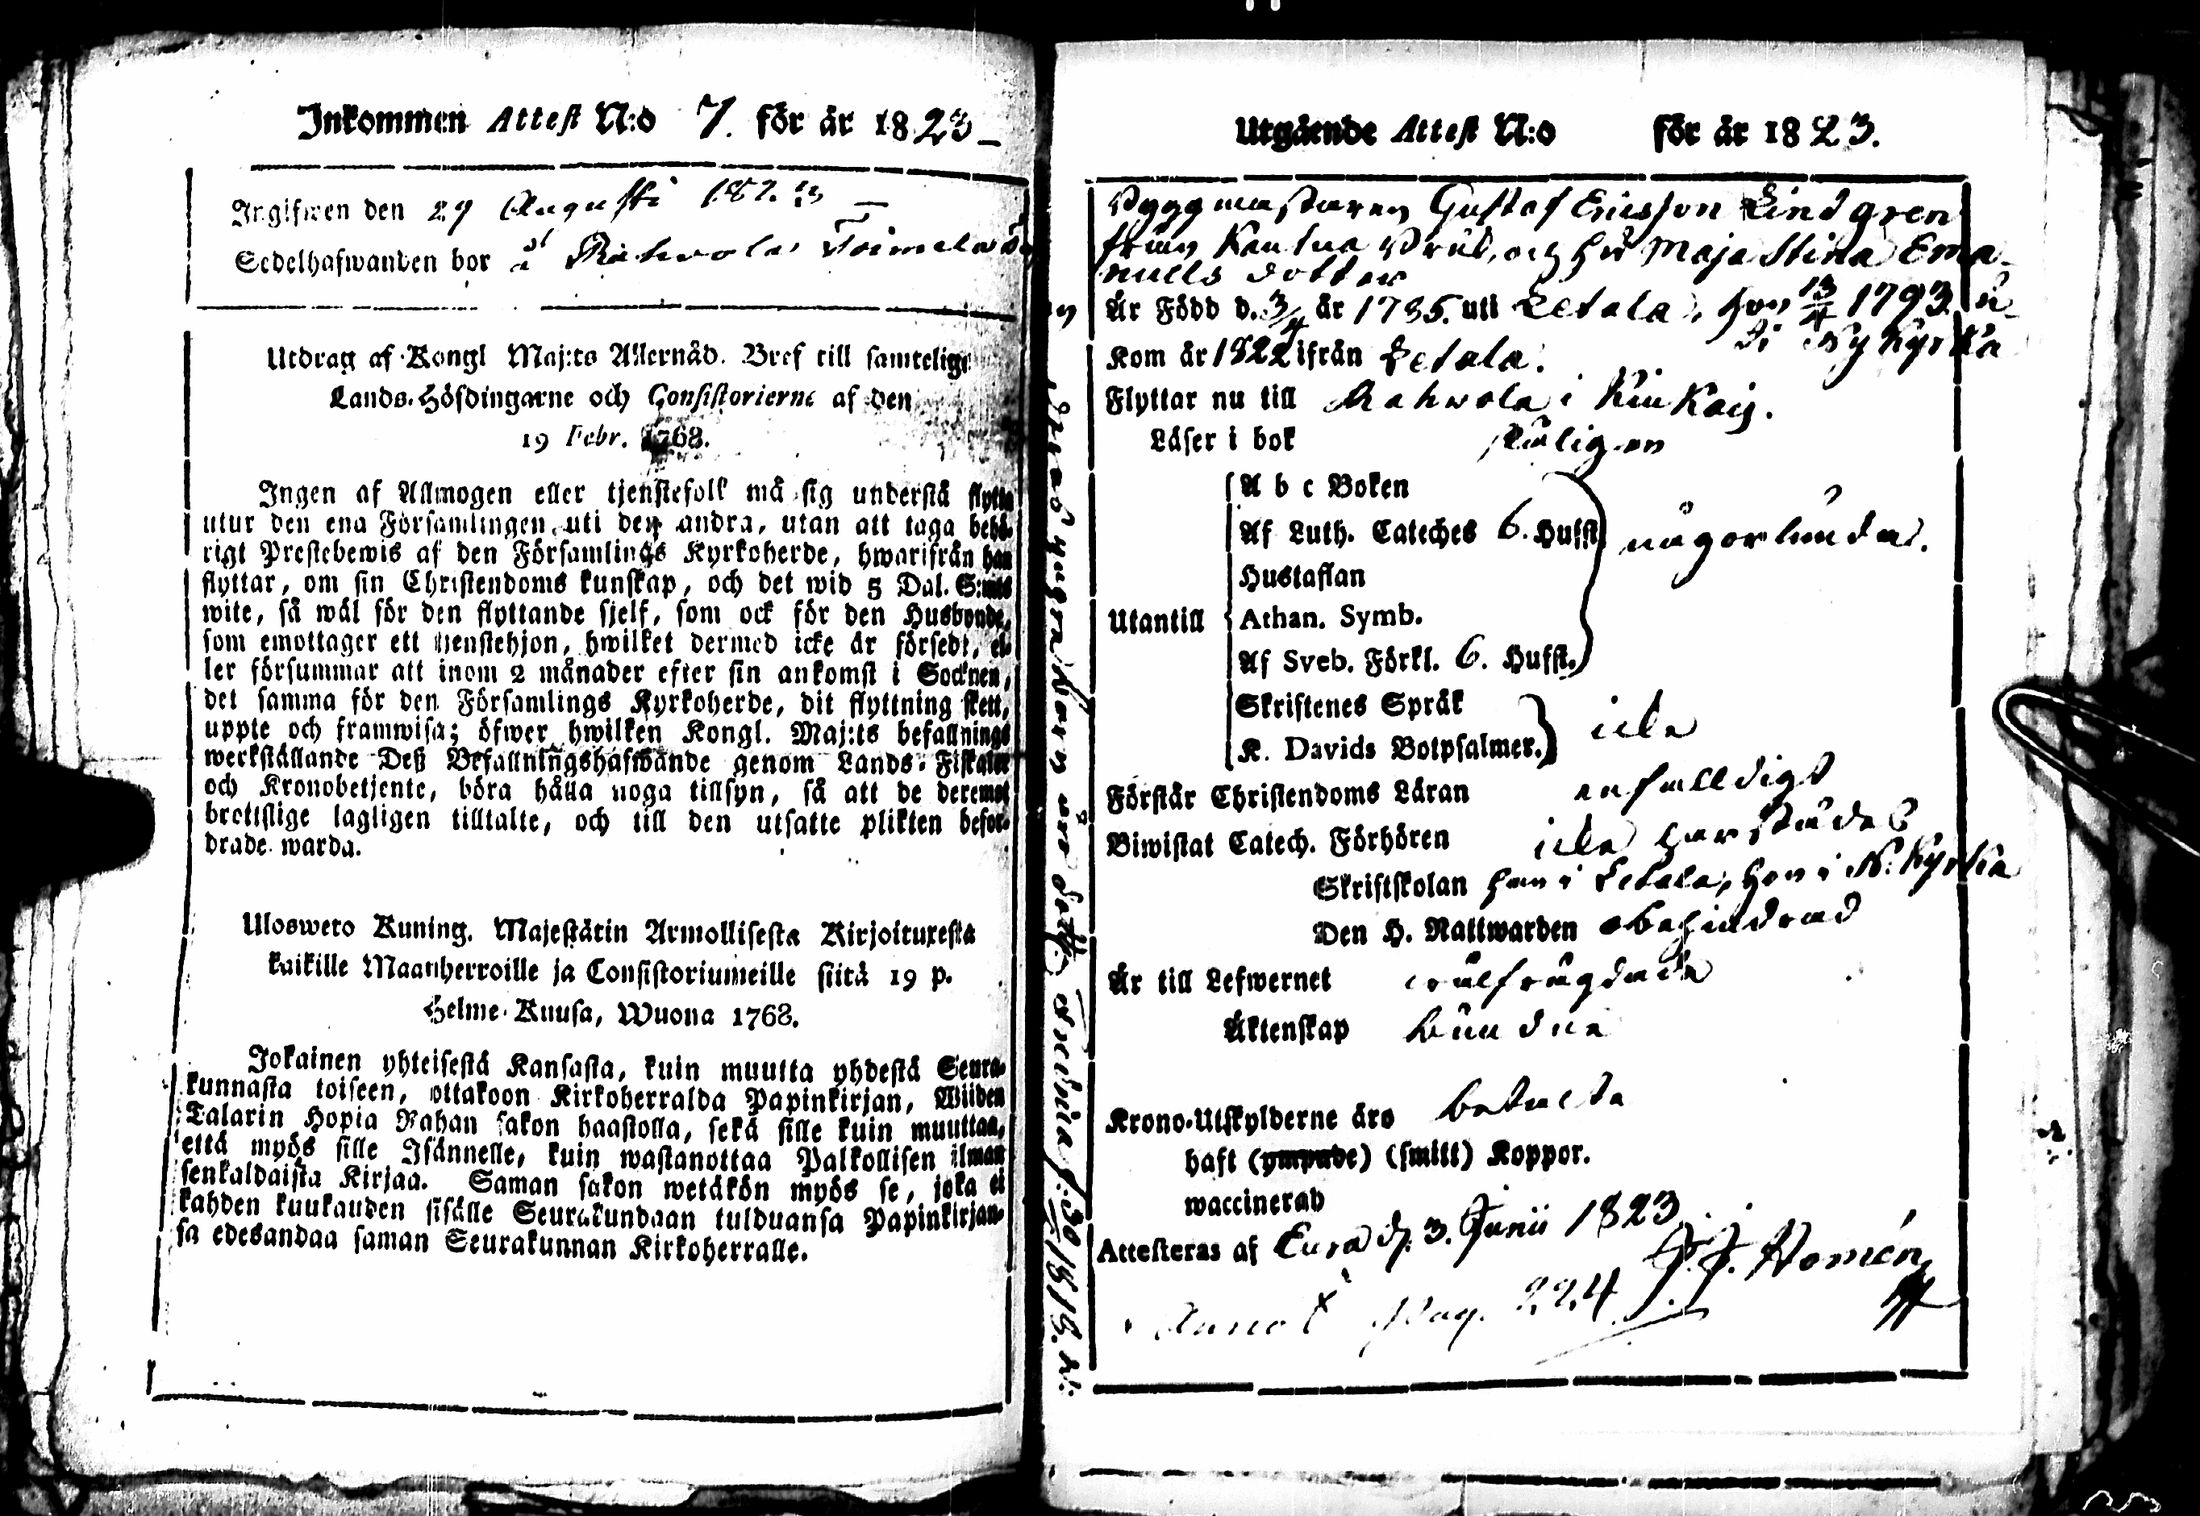 Inkommen Attest N:o 7. för år 1823
Ingifwen den 29 Augusti 1823
Sedelhafwanden bor å
Utdrag af Kongl Maj:ts Allernåd. Bref till samtelige
Lands-Höfdingarne och Consistorierne af den
19 Febr. 1768.
Ingen af Allmogen eller tjenstefolk må sig understå flytta
utur den ena Församlingen uti den andra, utan att taga behö-
rigt Prestebewis af den Församlings Kyrkoherde, hwarifrån han
flyttar, om sin Christendoms kunskap, och det wid 5 Dal. S:mts
wite, så wäl för den flyttande sjelf, som ock för den Husbonde,
som emottager ett tjenstehjon, hwilket dermed icke är försedt, el-
ler försummar att inom 2 månader efter sin ankomst i Socknen,
det samma för den Församlings Kyrkoherde, dit flyttning skett,
uppte och framwisa; öfwer hwilken Kongl. Maj:ts befallnings
werkställande Deß Befallningshafwande genom Lands-Fiskaler
och Kronobetjente, böra hålla noga tillsyn, så att de deremot
brottslige lagligen tilltalte, och till den utsatte plikten befor-
drade warda.
Uloswero Kuning. Majestätin Armollisesta Kirjoituxesta
kaikille Maanherroille ja Consistoriumeille siitä 19 p.
Helme-Kuusa, Wuona 1768.
Jokainen yhteisestä Kansasta, kuin muutta yhdestä Seura-
kunnasta toiseen, ottakoon Kirkoherralda Papinkirjan, Wiiden
Talarin Hopia Rahan sakon haastolla, sekä sille kuin muuttaa,
että myös sille Isännelle, kuin wastanottaa Palkollisen ilman
senkaldaista Kirjaa. Saman sakon wetäkön myös se, joka ei
kahden kuukauden sisälle Seurakundaan tulduansa Papinkirjan-
sa edesandaa saman Seurakunnan Kirkoherralle.
Utgående Attest N:o för år 1823.
Byggmästaren Gustaf Ericsson Lindgren
från Kautua Bruk, och H:u Maja Stina Ema-
nuels dotter
Är Född d. 3/4 år 1785. uti Letala, hon 13/4 1793. u-
ti Nykyrka
Kom år 1822 ifrån Letala.
Flyttar nu till Rahvola i Kiukais.
Läser i bok skäligen
Utantill
A b c Boken
Af Luth. Cateches 6. Hufst.
Hustaflan
Athan. Symb.
Af Sveb. Förkl. 6. Hufst.
någorlunda.
Skriftenes Språk
K. Davids Botpsalmer.
icke
Förstår Christendoms Läran enfalldigt
Biwistat Catech. Förhören icke härstädes
Skriftskolan han i Letala, hon i N. Kyrka
Den H. Nattwarden obehindrad
Är till Lefwernet wälfrägdade
Äktenskap bundne
Krono-Utskylderne äro betalta
haft (ympade) (smitt) Koppor.
waccinerad
Attesteras af Eura d. 3. Junii 1823
J. J. Homén
Pag. 224